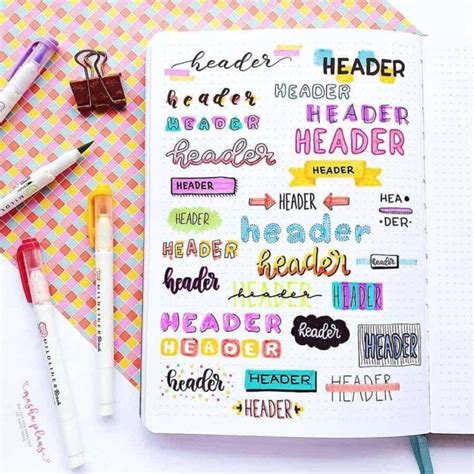 header
HEADER
header
HEADER
HEADER
HEADER
header
HEADER
HEADER
HEADER
HEADER
HEA•
•DER
HEADER
header
HEADER
header
HEADER
header
header
HEADER
HEADER
HEADER
header
HEADER
HEADER
header
HEADER
HEADER
HEADER
MILDLINER Brush
MILDLINER Brush
mashaplans